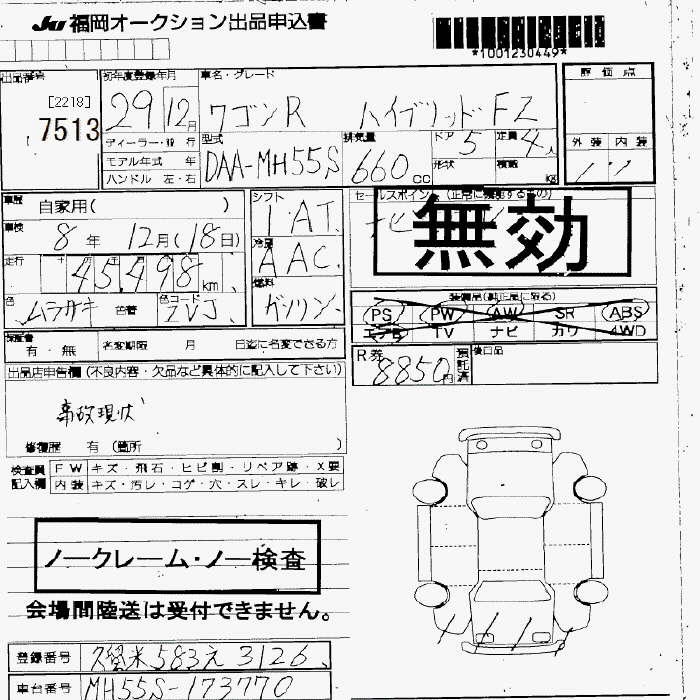 JU 福岡オークション出品申込書
*1001230449*
出品番号 初年度登録年月 車名・グレード 評価点
[2218]
7513
29 12月 ワゴンR ハイブリッドFZ
ディーラー・並行 型式 排気量 ドア 5 定員 4人 外装 内装
モデル年式 年 DAA-MH55S 660cc 形状 積載 kg
ハンドル 左・右
車歴 自家用( ) シフト セールスポイント(正常に機能するもの)
車検 8年 12月(18日) IAT ナビ
無効
走行 45,498km 冷房 AAC
色 ムラサキ 色替 色コード ZVJ 燃料 ガソリン
装備品(純正品に限る)
PS PW AW SR ABS
エアB TV ナビ カワ 4WD
保証書 有・無 名変期限 月 日迄に名変できる方
R券 8850円 預託済 後日品
出品店申告欄(不良内容・欠品など具体的に記入して下さい)
事故現状
修復歴 有 (箇所 )
検査員 FW キズ・飛石・ヒビ割・リペア跡・X要
記入欄 内装 キズ・汚レ・コゲ・穴・スレ・キレ・破レ
ノークレーム・ノー検査
会場間陸送は受付できません。
登録番号 久留米583え3126
車台番号 MH55S-173770